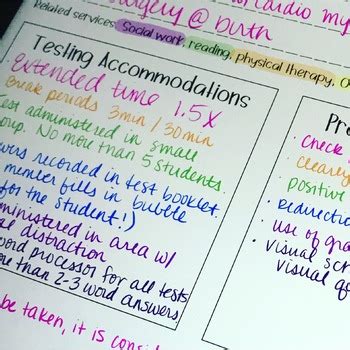 surgery @ birth
cardio my
Related services: Social work, reading, physical therapy, O
Testing Accommodations
Extended time 1.5x
Break periods 3min/30min
test administered in small
group. No more than 5 students.
recorded in test booklet
member fills in bubble
for the student!)
administered in area w/
distraction
word processor for all tests
more than 2-3 word answers
be taken, it is consid
Pr
Check
clearly
positive
reduction
use of gra
visual sc
visual